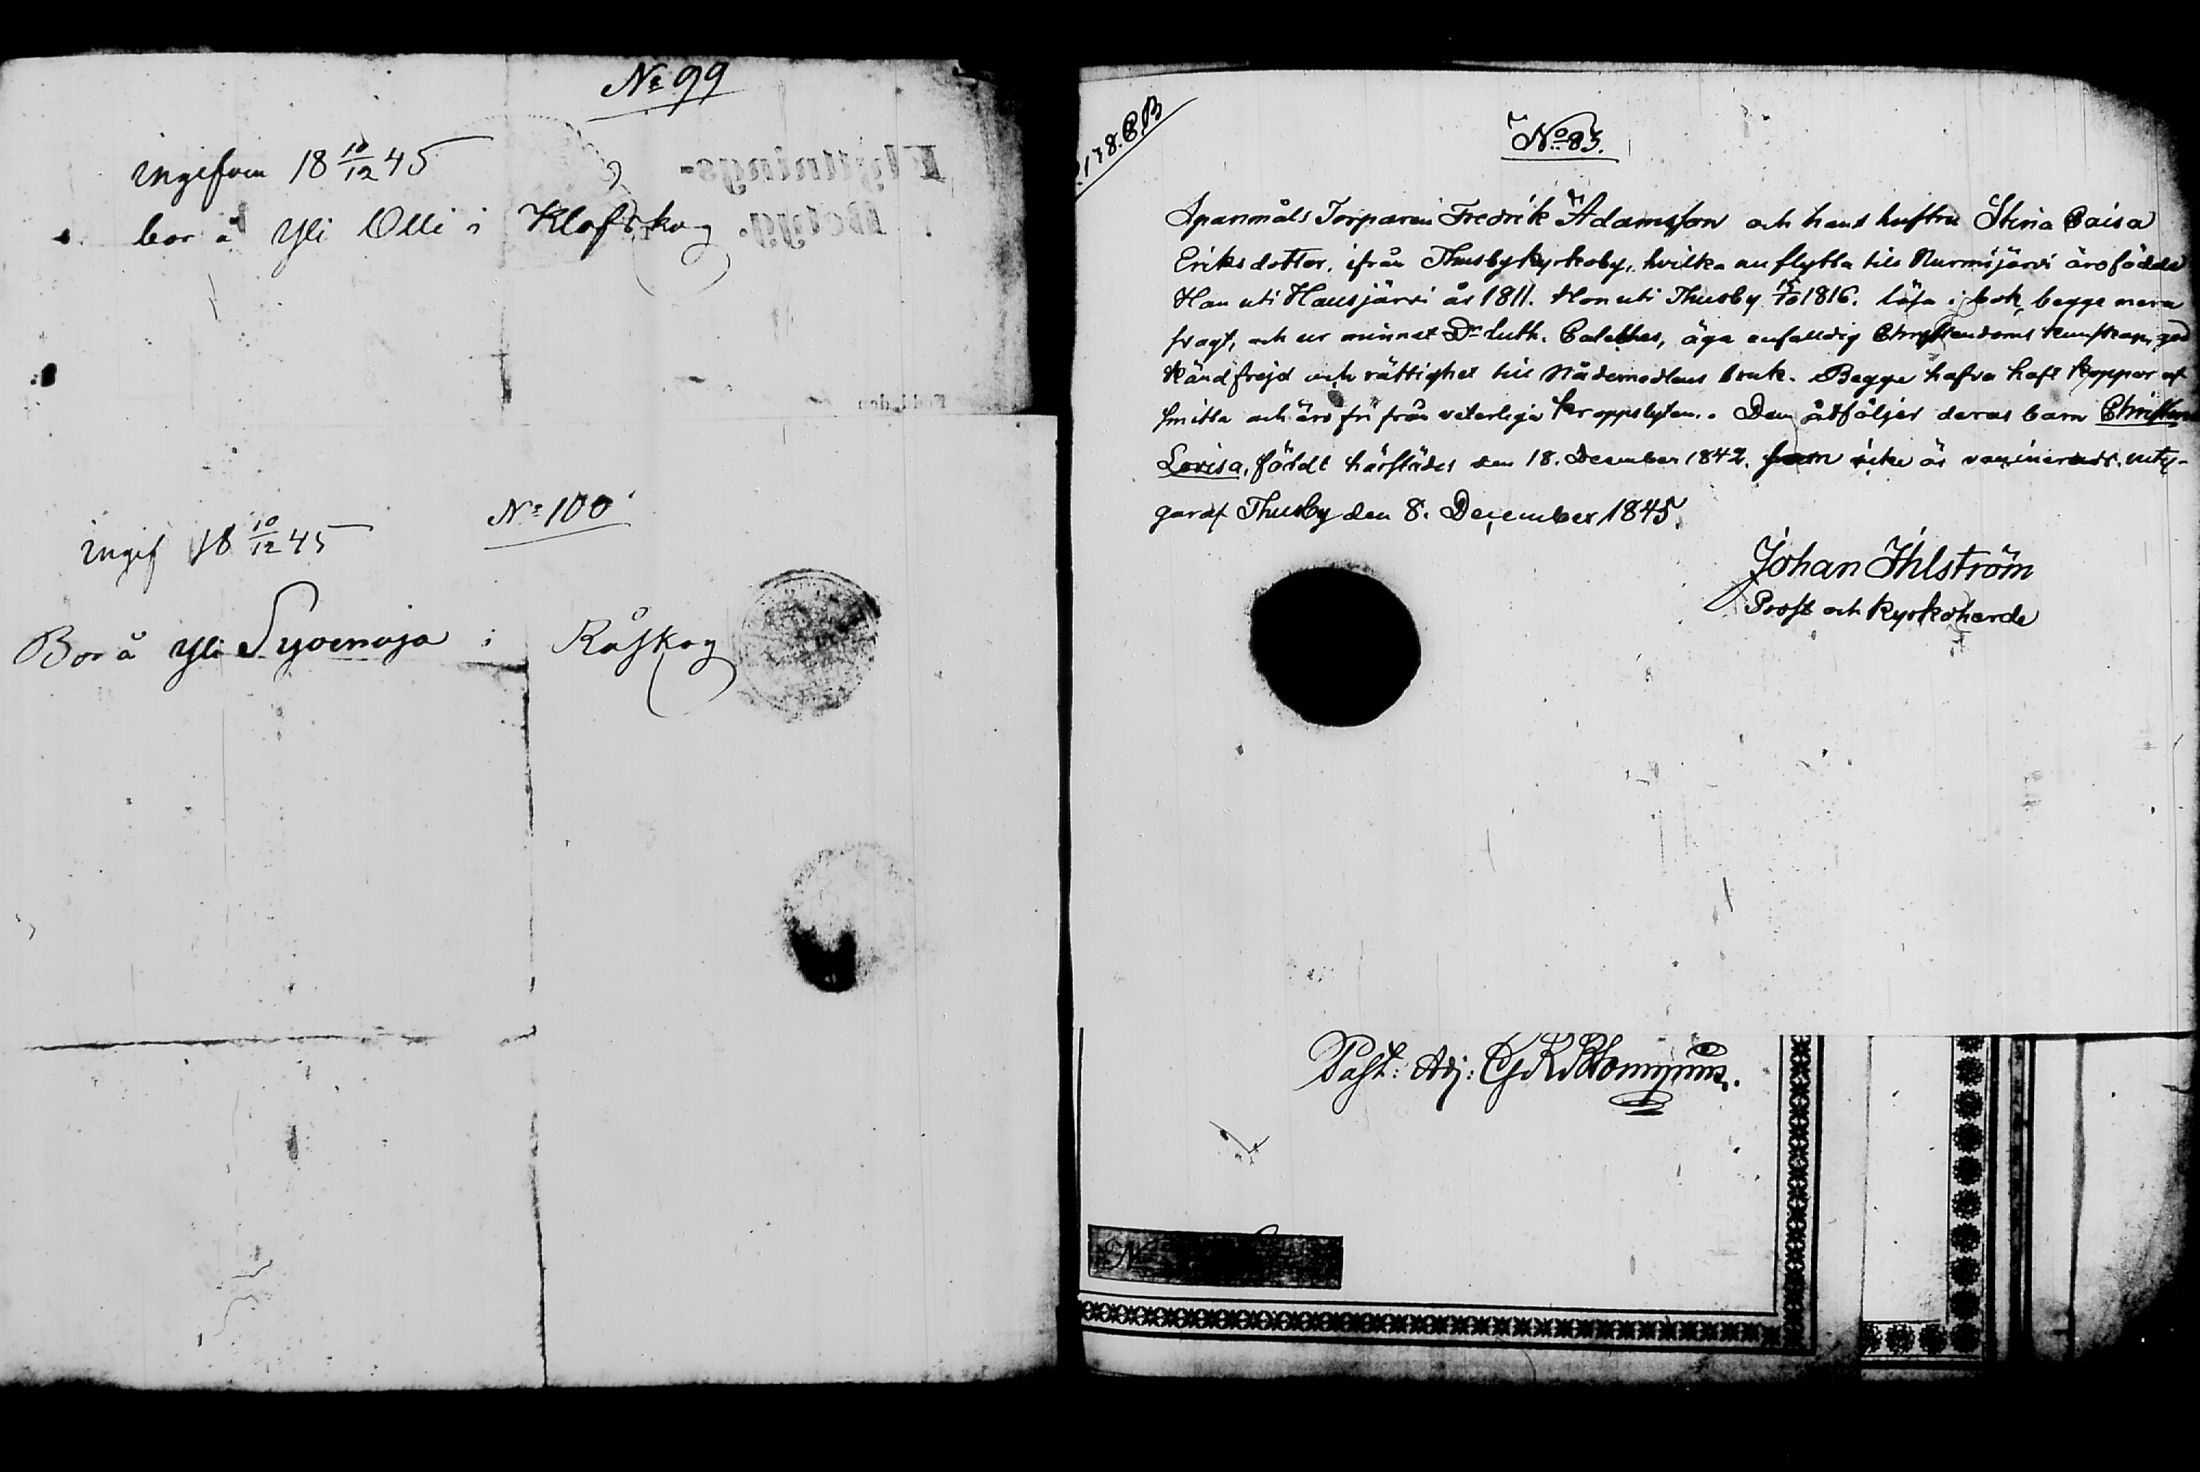 No 99
ingifven 18 10/12 45
bor å Yli Olli i Klofskog
Flyttnings-
Betyg.
No 100
ingif 18 10/12 45
Bor å Yli Syvenoja i Råskog
178. CB
No 83.
Spanmåls Torparen Fredrik Adamsson och hans hustru Stina Caisa
Eriksdotter, ifrån Thusby kyrkoby, hvilka nu flytta till Nurmijärvi äro födde
Han uti Hausjärvi år 1811. Hon uti Thusby 1816. läsa i bok begge
svagt, och ur minnet Dr Luth. Cateches, äga enfalldig Christendoms kunskap, god
känd frejd och rättighet till Nådemedlens bruk. Begge hafva haft koppor af
smitta och äro fri från veterliga kroppslyten. Dem åtföljer deras barn
Lovisa, född härstädes den 18. December 1842. som icke är vaccineradt. bety-
gar af Thusby den 8. December 1845.
Johan Ihlström
Prost och Kyrkoherde
Past: Adj:
No